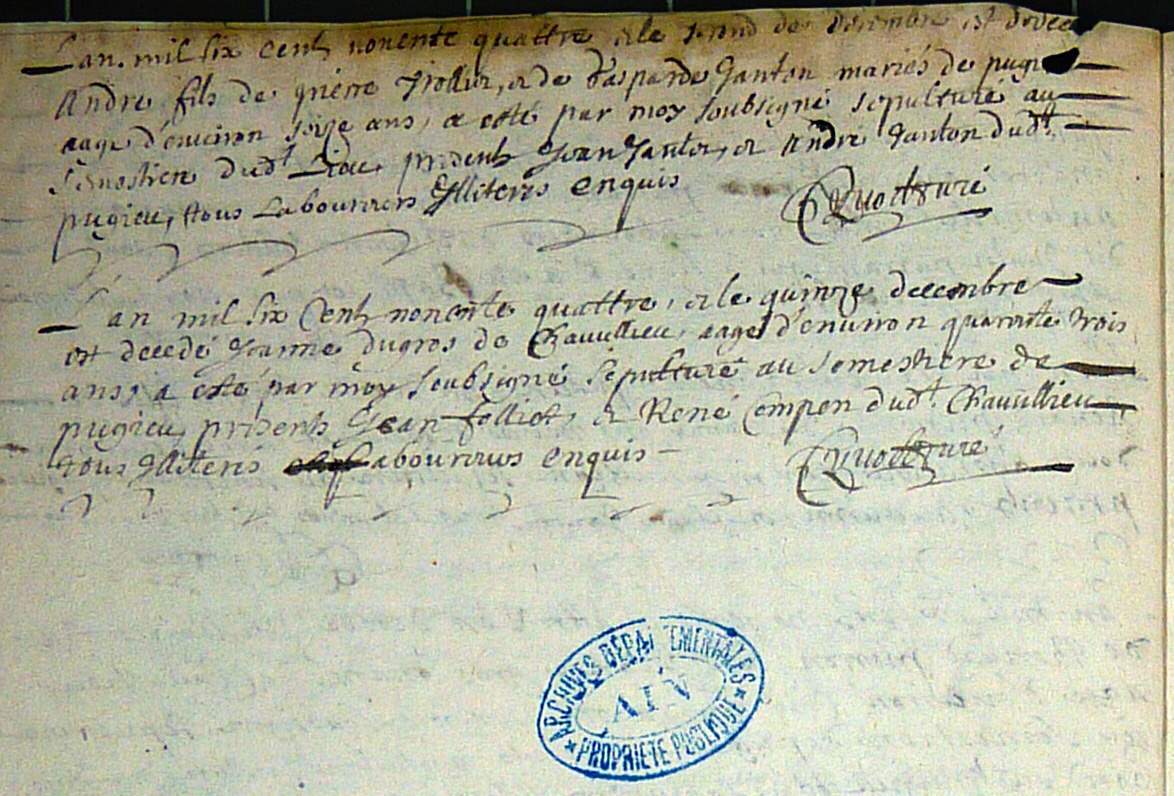 L'an mil six cent nonente quattre & le segond de desembre est deced
Andre fils de pierre Trollier, & de gasparde Janton mariés de pugi
eagé d'environ seize ans, a esté par moy soubsigné sepulturé au
semestiere dud.t lieu, presents Jean Janton, & Andre Janton dud.t
pugieu, tous Laboureurs Illiterés enquis
L'an mil six Cent nonente quattre, & le quinze decembre
est decedé Jeanne dugros de Chavillieu, eagé d'environ quarante trois
ans, a esté par moy soubsigné sepulturé au semestiere de
pugieu, presents Jean folliet, & René Compen dud.t Chavillieu
tous Illiterés Laboureurs enquis
curé
ARCHIVES DÉPARTEMENTALES
AIN
* PROPRIETE PUBLIQUE *